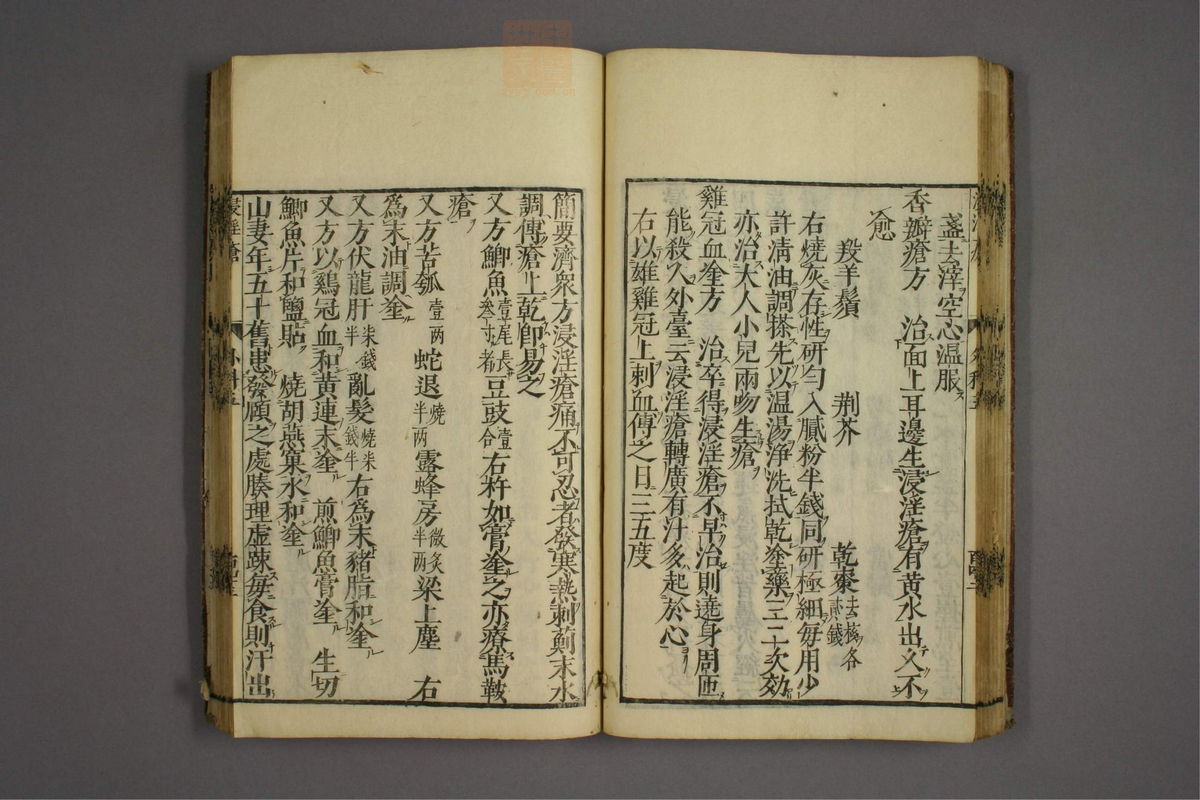 盞去滓空心温服
香瓣瘡方　治面上耳邊生浸淫瘡有黄水出久不
愈
羖羊鬚　荆芥　乾棗去核各貳錢
右燒灰存性研勻入膩粉半錢同研極細毎用少
許淸油調搽先以温湯淨洗拭乾塗藥三二次効
亦治大人小兒兩吻生瘡
雞冠血塗方　治卒得浸淫瘡不早治則遶身周匝
能殺人外臺云浸淫瘡轉廣有汁多起於心
右以雄雞冠上刺血傅之日三五度
簡要濟衆方浸淫瘡痛不可忍者發寒熱刺薊末水
調傅瘡上乾卽易之
又方鯽魚壹尾長叁寸者豆豉壹合右杵如膏塗之亦療馬鞍
瘡
又方苦瓠壹两蛇退燒半两露蜂房微炙半两梁上塵　右
爲末油調塗
又方伏龍肝半錢亂髮燒半錢右爲末豬脂和塗
又方以鷄冠血和黄連末塗　煎鯽魚膏塗　生切
鯽魚片和鹽貼　燒胡燕窠水和塗
山妻年五十舊患發頤之處腠理虚踈毎食則汗出
浸淫瘡
外科五